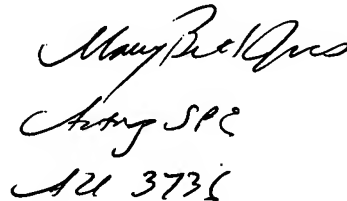 Mary Beth Jones
Acting SPE
AU 3735